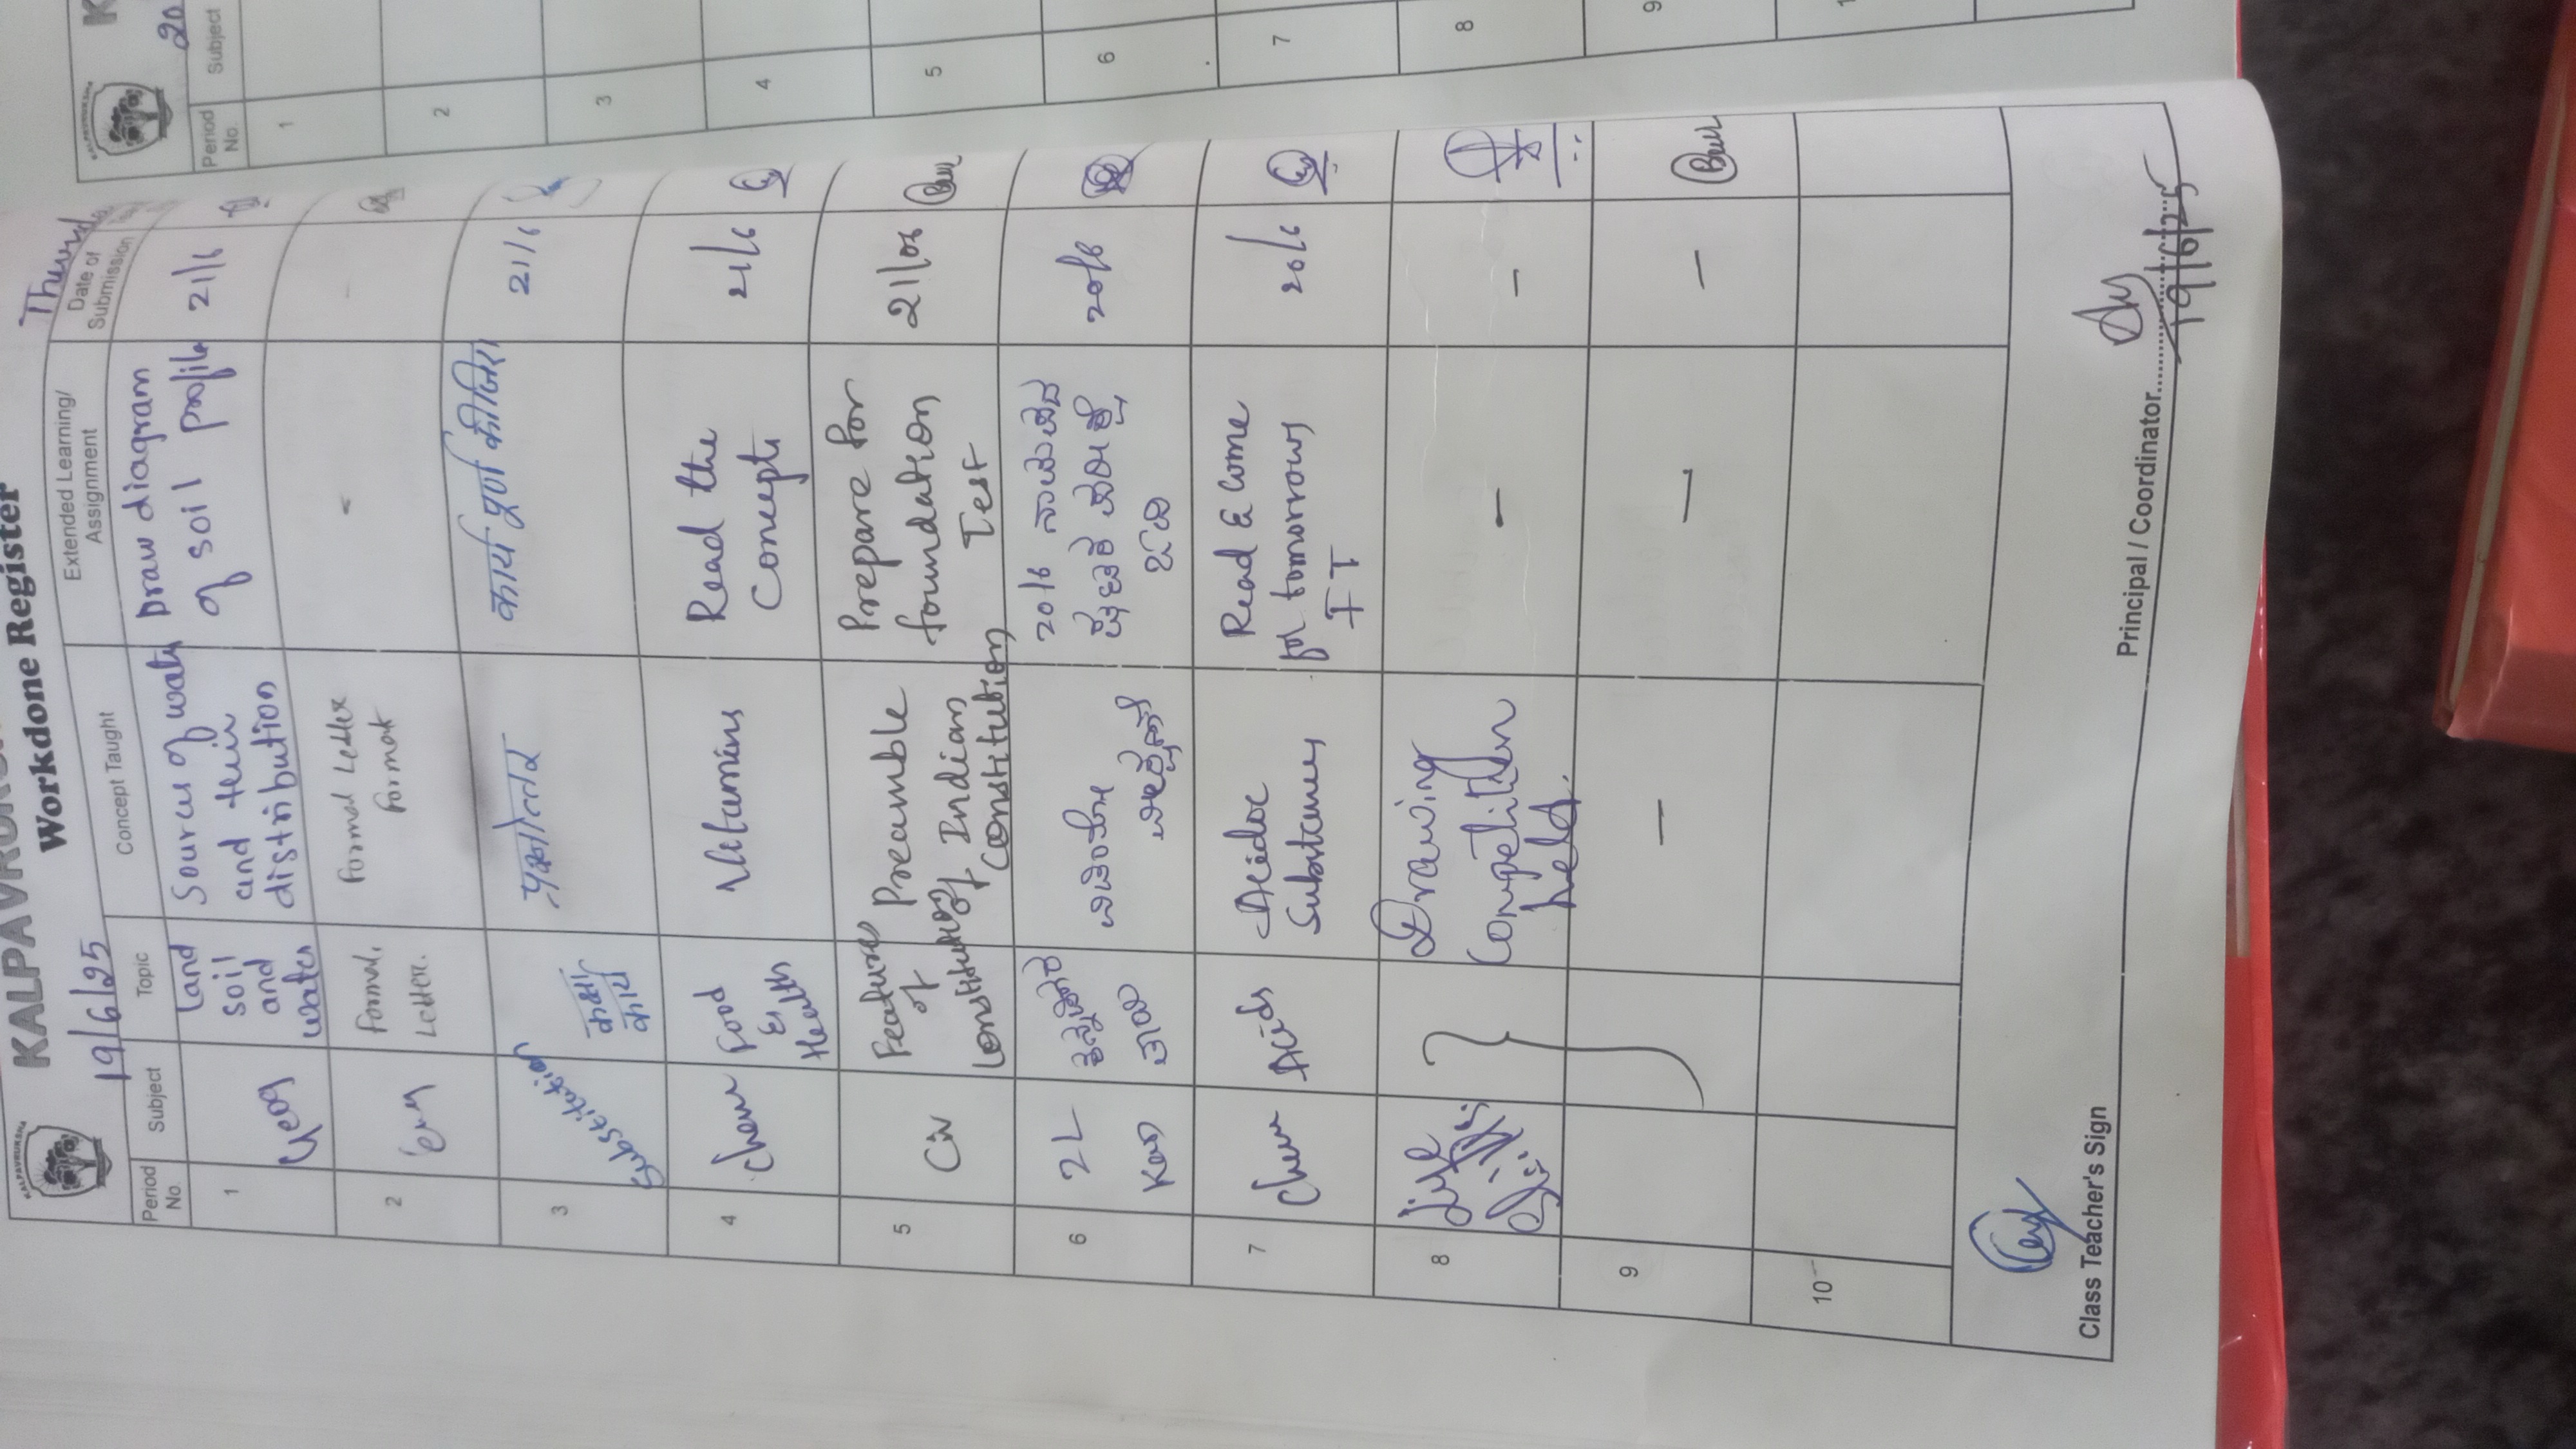 KALPAVRUKSHA
Workdone Register
19/6/25
Period No.
Subject
Topic
Concept Taught
Extended Learning/ Assignment
Date of Submission
1
Geog
Land
soil
and
water
Sources of water
and their
distribution
Draw diagram
of soil profile
21/6
2
Eng
Formal
Letter.
Formal Letter
format
-
-
3
Substitution
कक्षा
कार्य
प्रश्नोत्तर
कार्य पूर्ण कीजिए।
21/6
4
Chem
Food
&
Health
Vitamins
Read the
Concepts
21/6
5
Civ
Features
of
Constitution
Preamble
of Indian
Constitution
Prepare for
foundation
Test
21/06
6
2L
Kan
20/6
20/6
7
Chem
Acids
Acidic
Substances
Read & Come
for tomorrows
FT
20/6
8
Drawing
Competition
held.
-
-
9
-
-
-
10
Class Teacher's Sign
Principal / Coordinator
19/6/25
KALPAVRUKSHA
K
20
Period No.
Subject
1
2
3
4
5
6
7
8
9